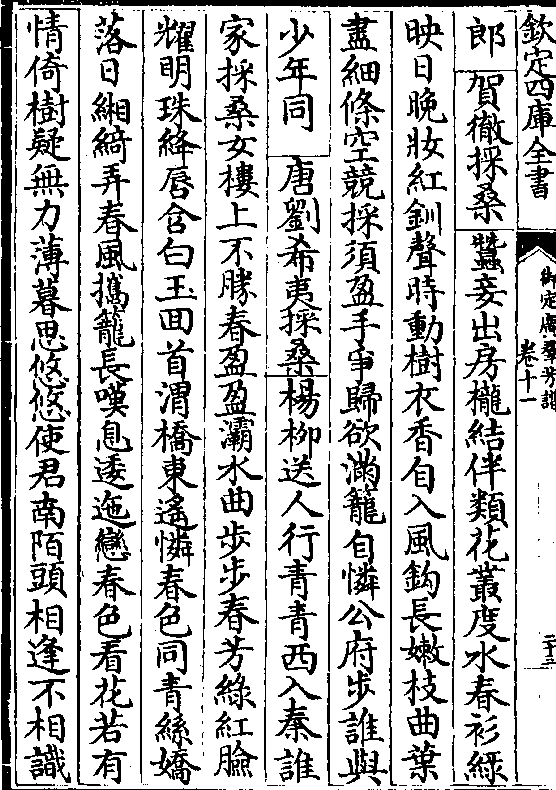 欽定四庫全書
御定廣羣芳譜
卷十一
二十三
郎　賀徹採桑　蠶妾出房櫳結伴類花叢度水春衫緑
映日晩妝紅釧聲時動樹衣香自入風鈎長嫩枝曲葉
盡細條空競採須盈手爭歸欲滿籠自憐公府步誰與
少年同　唐劉希夷採桑　楊柳送人行青青西入秦誰
家採桑女樓上不勝春盈盈灞水曲步步春芳綠紅臉
耀明珠絳唇含白玉囘首渭橋東遙憐春色同青絲嬌
落日緗綺弄春風攜籠長嘆息逶迤戀春色看花若有
情倚樹疑無力薄暮思悠悠使君南陌頭相逢不相識